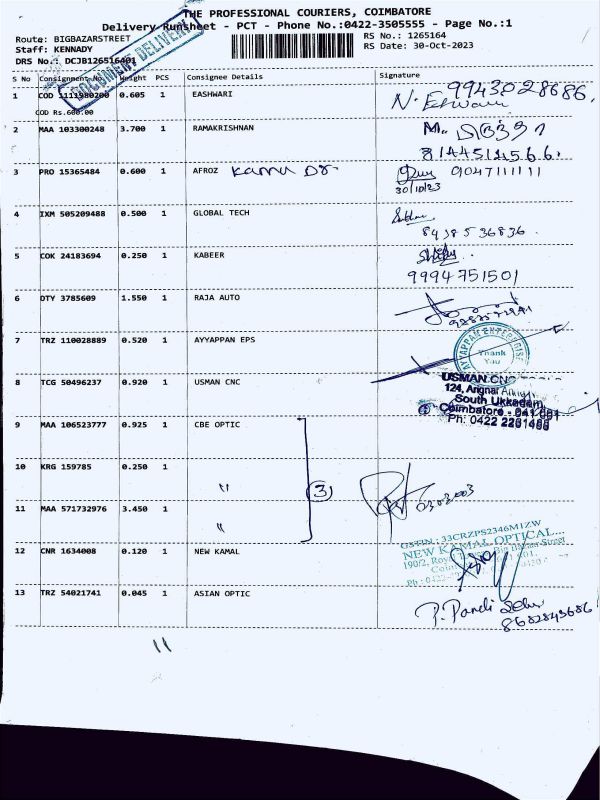 THE PROFESSIONAL COURIERS, COIMBATORE
Delivery Runsheet - PCT - Phone No.:0422-3505555 - Page No.:1
Route: BIGBAZARSTREET
RS No.: 1265164
Staff: KENNADY
RS Date: 30-Oct-2023
DRS No.: DCJB126516401
DOCUMENT DELIVERY
S No Consignment No Weight PCS Consignee Details Signature
1 COD 1111980200 0.605 1 EASHWARI 9943028686.
COD Rs.600.00
2 MAA 103300248 3.700 1 RAMAKRISHNAN
8144514566.
3 PRO 15365484 0.600 1 AFROZ 9047111111
30/10/23
4 IXM 505209488 0.500 1 GLOBAL TECH
8438536836.
5 COK 24183694 0.250 1 KABEER
9994751501
6 OTY 3785609 1.550 1 RAJA AUTO
7 TRZ 110028889 0.520 1 AYYAPPAN EPS
AYYAPPAN ENTERPRISE
Thank
You
8 TCG 50496237 0.920 1 USMAN CNC
USMAN CNC
124, Angnai
South Ukkadam
Coimbatore - 641 001
Ph: 0422 2231488
9 MAA 106523777 0.925 1 CBE OPTIC
10 KRG 159785 0.250 1 "
(3)
11 MAA 571732976 3.450 1 "
GSTIN : 33CRZPS2346M1ZW
NEW KAMAL OPTICAL
12 CNR 1634008 0.120 1 NEW KAMAL
190/2, Royal
Street
13 TRZ 54021741 0.045 1 ASIAN OPTIC
8682843686
11